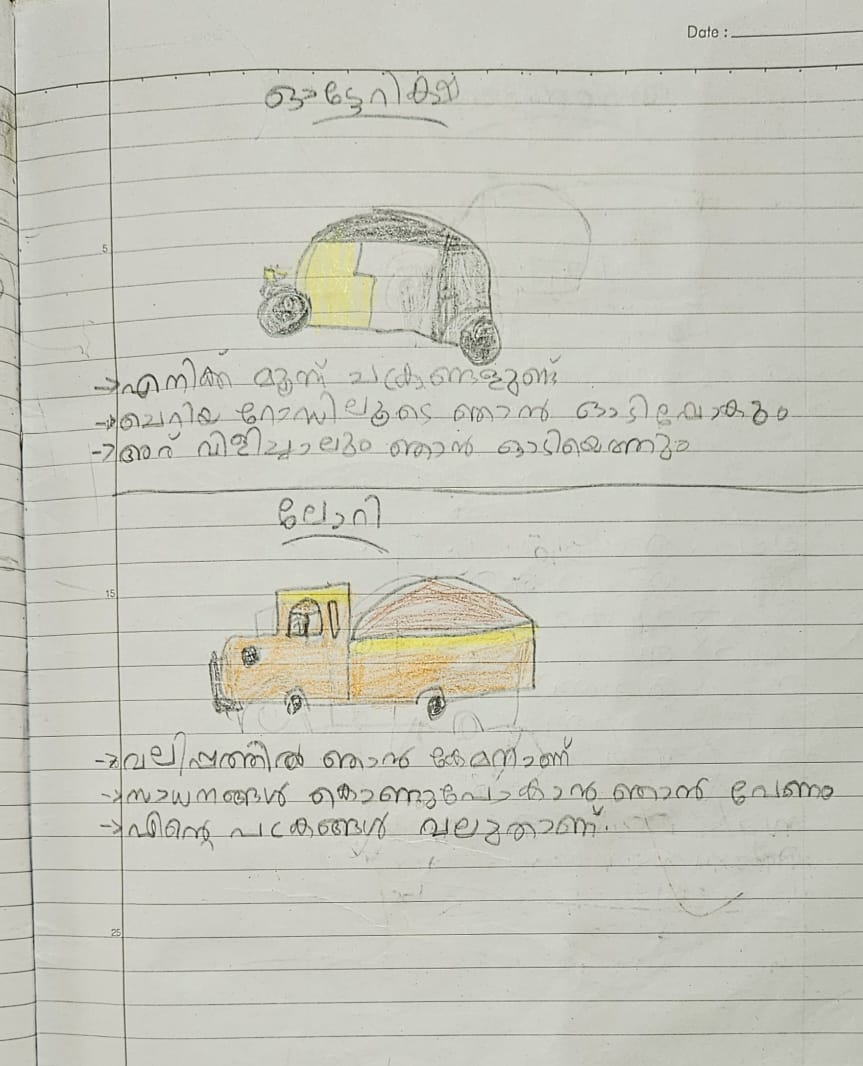 Date :
ഓട്ടോറിക്ഷ
5
→എനിക്ക് മൂന്ന് ചക്രങ്ങളുണ്ട്
→ചെറിയ റോഡിലൂടെ ഞാൻ ഓടിപ്പോകും
→ആര് വിളിച്ചാലും ഞാൻ ഓടിയെത്തും
ലോറി
15
→വലിപ്പത്തിൽ ഞാൻ കേമനാണ്
→സാധനങ്ങൾ കൊണ്ടുപോകാൻ ഞാൻ വേണം
→എന്റെ ചക്രങ്ങൾ വലുതാണ്.
25